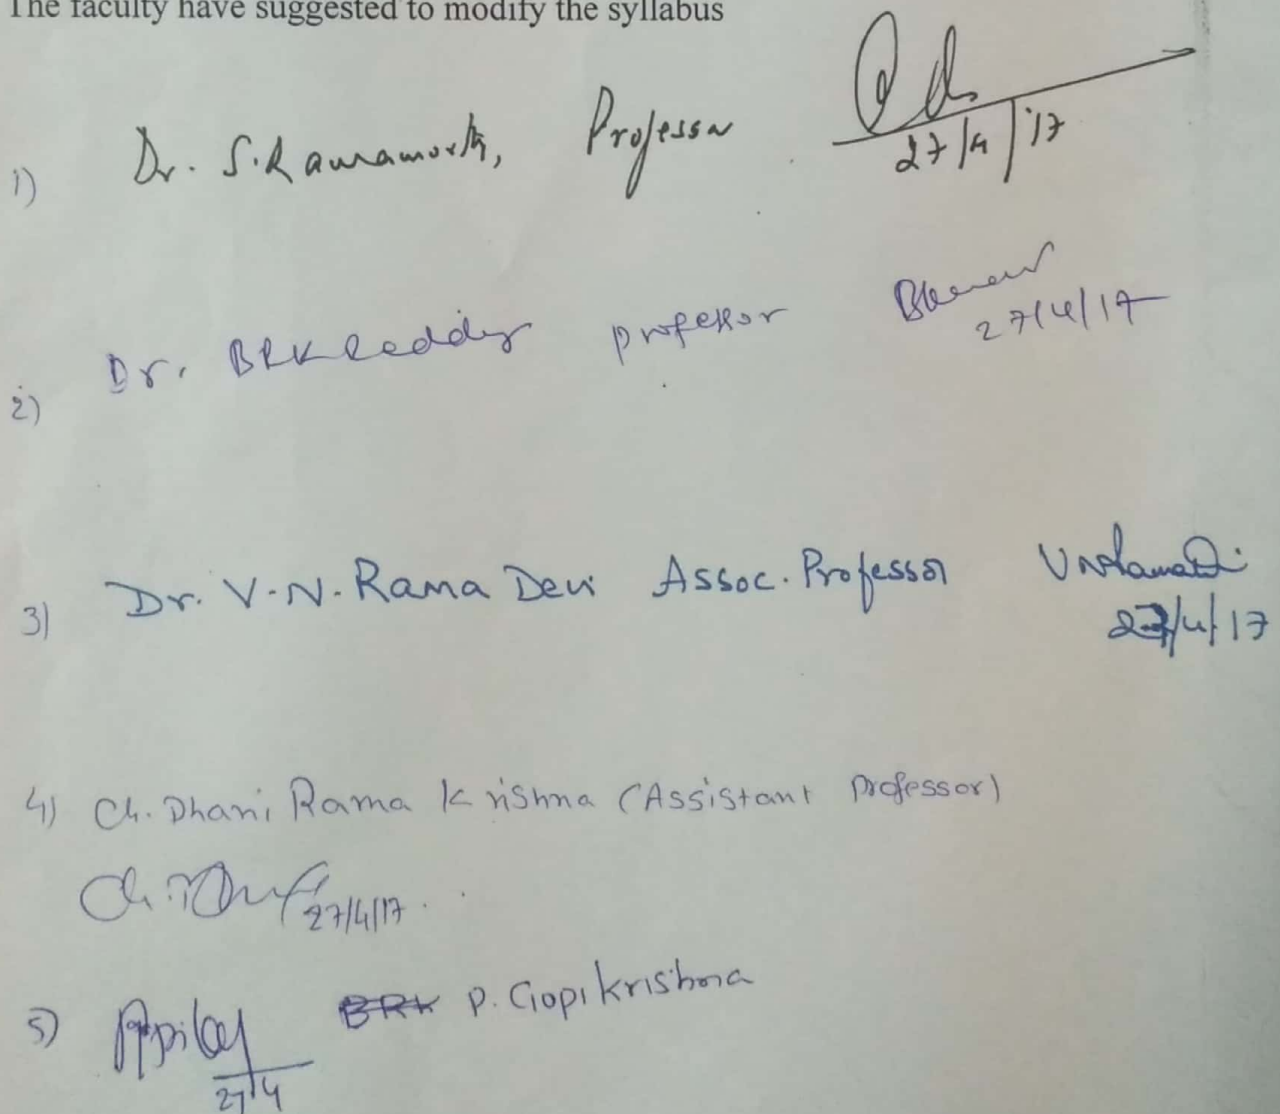 The faculty have suggested to modify the syllabus
1) Dr. S. Ramamurth, Professor 27/4/'17
2) Dr. BRK Reddy professor 27/4/17
3) Dr. V.N. Rama Devi Assoc. Professor VN Rama Devi 27/4/17
4) Ch. Dhani Rama Krishna (Assistant professor)
27/4/17
5) BRK P. Gopi krishna
27/4